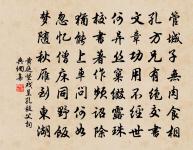 管城子無食肉相
孔方兄有絕交書
文章功用不經世
何異絲窠綴露珠
校書著作頻詔除
猶能上車問何如
忽憶僧床同野飯
夢隨秋雁到東湖
黃庭堅戲呈孔毅父詞
典網集